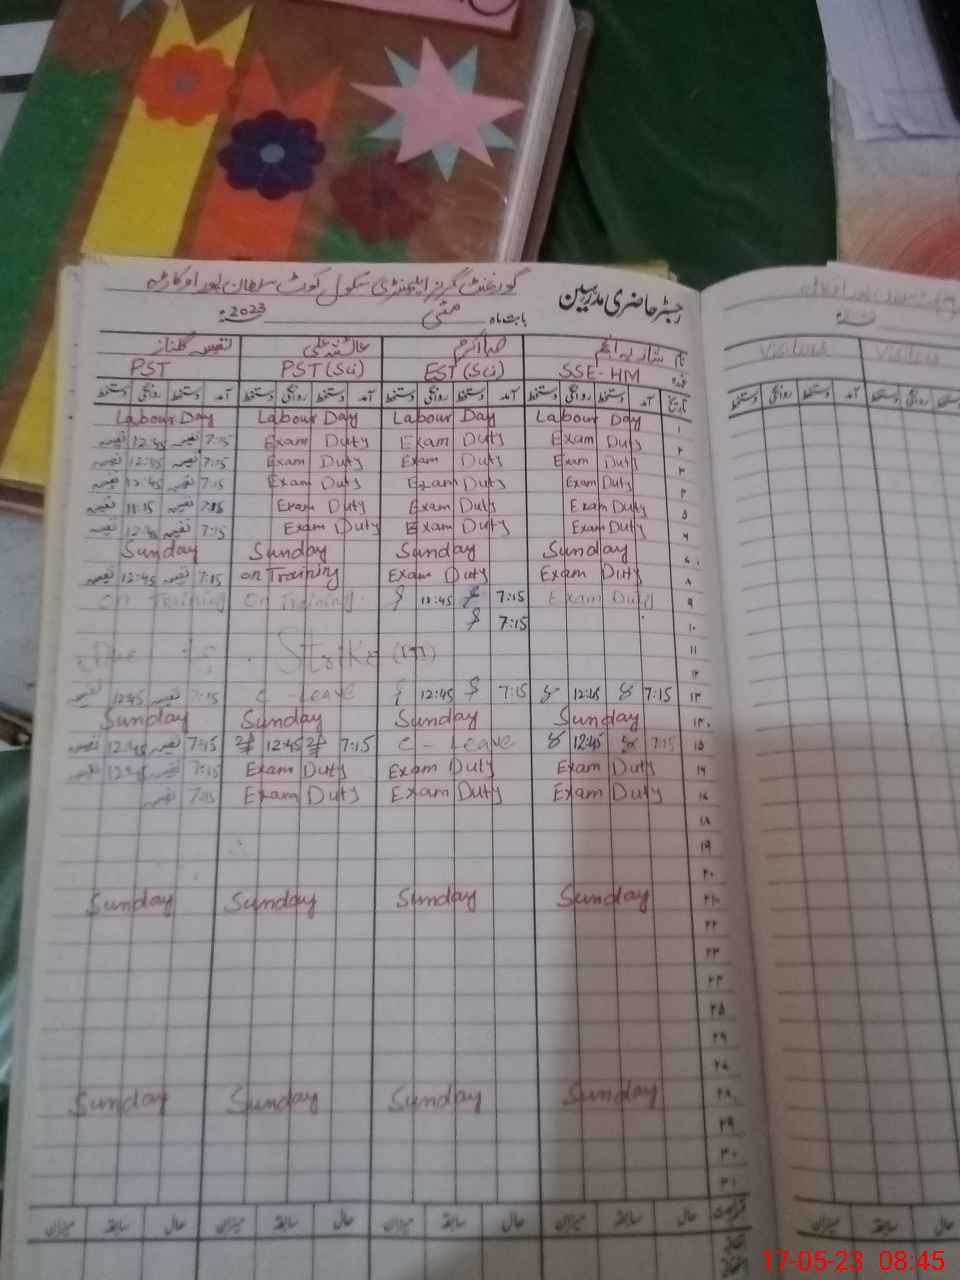 گورنمنٹ گرلز ایلیمنٹری سکول کوٹ سلطان پور اوکاڑہ
رجسٹر حاضری مدرسین
بابت ماہ مئی 2023
نام
صبا اکرم
عائشہ علی
نفیس گلناز
عہدہ SSE-HM EST (Sci) PST (Sci) PST
تاریخ آمد دستخط روانگی دستخط آمد دستخط روانگی دستخط آمد دستخط روانگی دستخط آمد دستخط روانگی دستخط
Labour Day Labour Day Labour Day Labour Day ۱
نفیس 12:45 نفیس 7:15 Exam Duty Exam Duty Exam Duty ۲
نفیس 12:45 نفیس 7:15 Exam Duty Exam Duty Exam Duty ۳
نفیس 12:45 نفیس 7:15 Exam Duty Exam Duty Exam Duty ۴
نفیس 11:15 نفیس 7:15 Exam Duty Exam Duty Exam Duty ۵
نفیس 12:45 نفیس 7:15 Exam Duty Exam Duty Exam Duty ۶
Sunday Sunday Sunday Sunday
نفیس 12:45 نفیس 7:15 on Training Exam Duty Exam Duty ۸
On Training On Training 12:45 7:15 Exam Duty ۹
7:15 ۱۰
Due To Strike ۱۱
۱۲
نفیس 12:45 نفیس 7:15 C-Leave 12:45 7:15 12:45 7:15 ۱۳
Sunday Sunday Sunday Sunday ۱۴
نفیس 12:45 نفیس 7:15 12:45 7:15 C-Leave 12:45 7:15 ۱۵
نفیس 12:45 نفیس 7:15 Exam Duty Exam Duty Exam Duty ۱۶
نفیس 7:15 Exam Duty Exam Duty Exam Duty ۱۷
۱۸
۱۹
۲۰
Sunday Sunday Sunday Sunday ۲۱
۲۲
۲۳
۲۴
۲۵
۲۶
۲۷
Sunday Sunday Sunday Sunday ۲۸
۲۹
۳۰
۳۱
حال سابقہ میزان حال سابقہ میزان حال سابقہ میزان حال سابقہ میزان
Visitors Visitors
آمد دستخط روانگی دستخط
سابقہ میزان
17-05-23 08:45